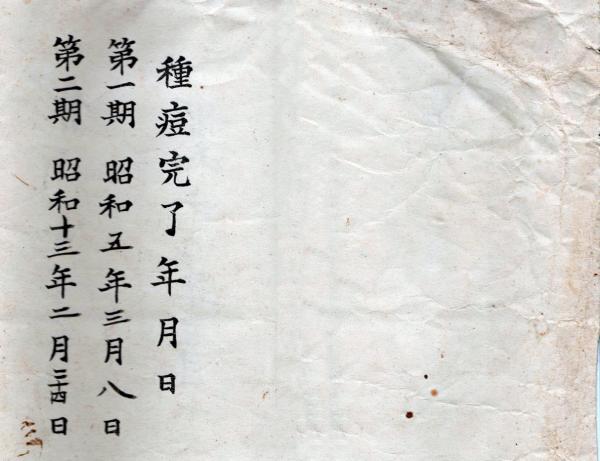 種痘完了年月日
第一期 昭和五年三月八日
第二期 昭和十三年二月二十四日